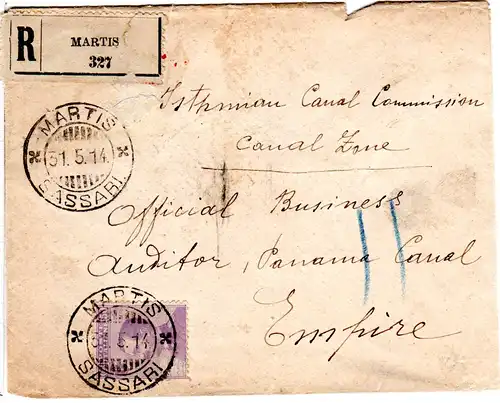 R
MARTIS
327
Isthmian Canal Commission
Canal Zone
MARTIS
31.5.14
SASSARI
Official Business
Auditor, Panama Canal
Empire
MARTIS
5.14
SASSARI